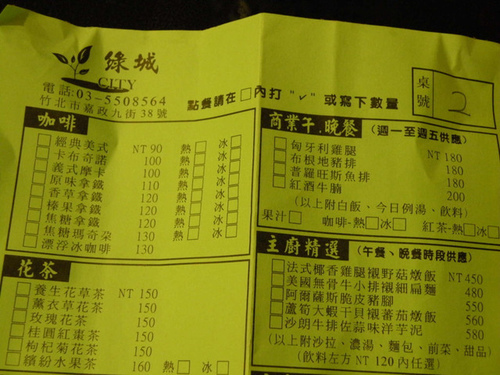 綠城
CITY
電話:03-5508564
竹北市嘉政九街38號
點餐請在□內打 "✓" 或寫下數量
桌號 2
咖啡
□經典美式 NT 90 熱□ 冰□
□卡布奇諾 100 熱□ 冰□
□義式摩卡 100 熱□ 冰□
□原味拿鐵 110 熱□ 冰□
□香草拿鐵 120 熱□ 冰□
□榛果拿鐵 120 熱□ 冰□
□焦糖拿鐵 120 熱□ 冰□
□焦糖瑪奇朵 130 熱□ 冰□
□漂浮冰咖啡 130
花茶
□養生花草茶 NT 150
□薰衣草花茶 150
□玫瑰花茶 150
□桂圓紅棗茶 150
□枸杞菊花茶 150
□繽紛水果茶 160 熱□ 冰□
商業午.晚餐 (週一至週五供應)
□匈牙利雞腿 NT 180
□布根地豬排 180
□普羅旺斯魚排 180
□紅酒牛腩 200
(以上附白飯、今日例湯、飲料)
果汁□ 咖啡-熱□冰□ 紅茶-熱□冰□
主廚精選 (午餐、晚餐時段供應)
□法式椰香雞腿襯野菇燉飯 NT 450
□美國無骨牛小排襯細扁麵 480
□阿爾薩斯脆皮豬腳 550
□蘆筍大蝦干貝襯蕃茄燉飯 560
□沙朗牛排佐蒜味洋芋泥 580
(以上附沙拉、濃湯、麵包、前菜、甜品)
(飲料左方 NT 120 內任選)